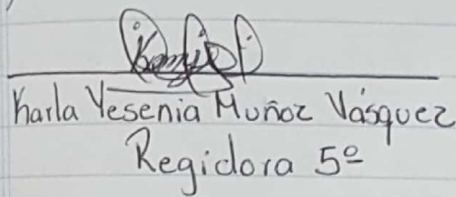 Karla Yesenia Muñoz Vásquez
Regidora 5º